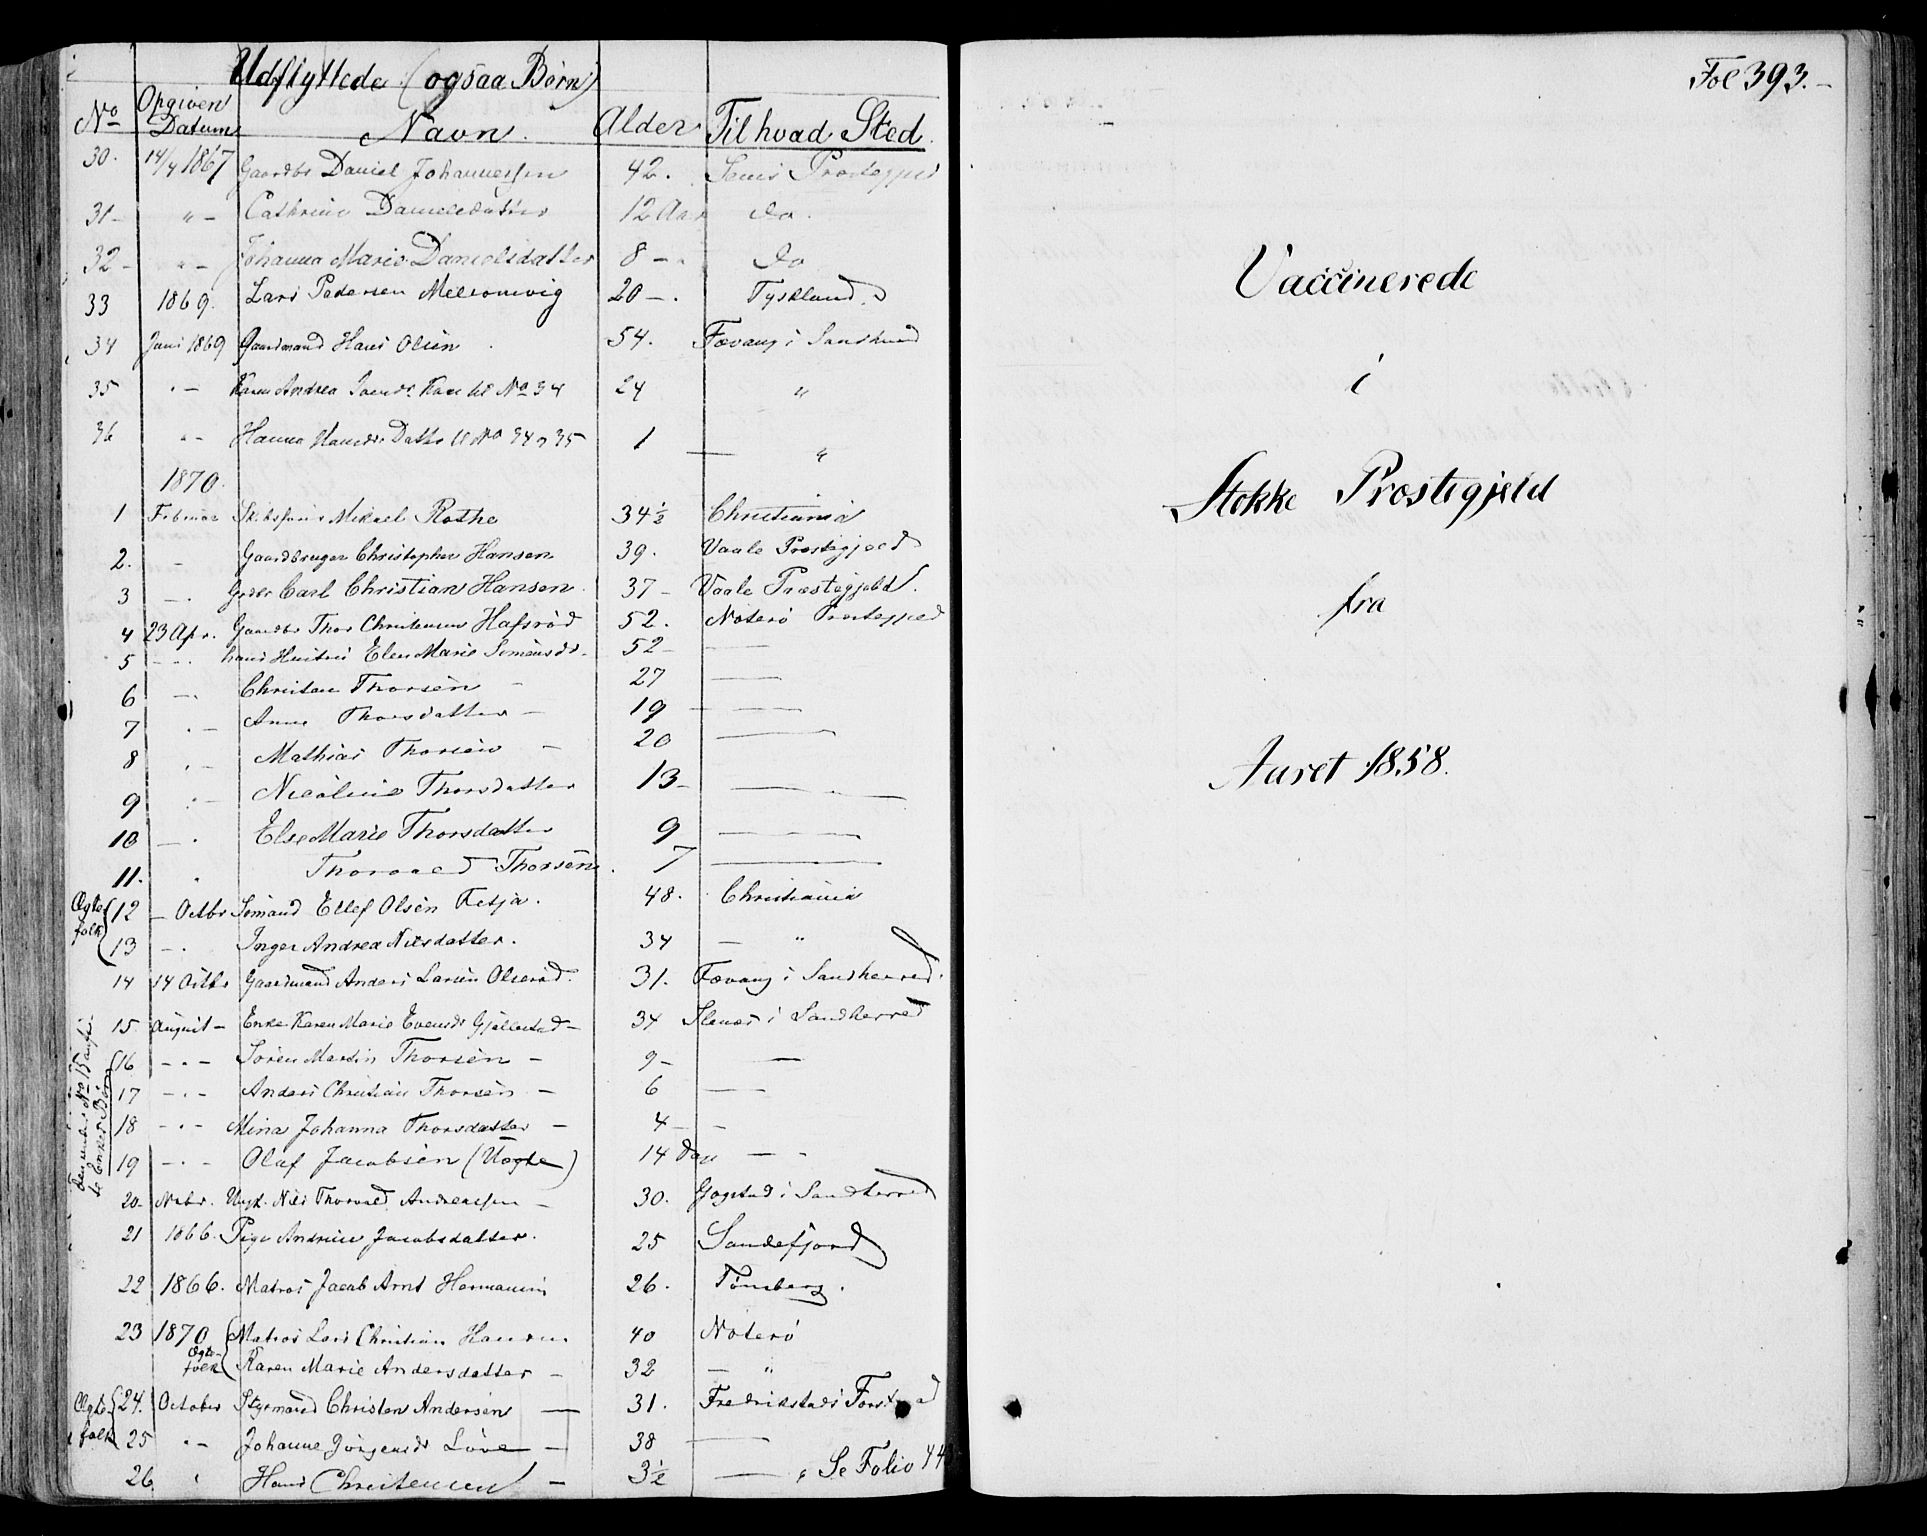 Udflyttede (ogsaa Børn)
No Opgiven Datum Navn. Alder Til hvad Sted.
30. 14/4 1867 Gaardbr Daniel Johannessen 42. Sems Præstegjeld
31 - " - Cathrine Danielsdatter 12 Aar do.
32 - " - Johanna Marie Danielsdatter 8 - " do
33 1869. Lars Pedersen Melsomvig 20 - . Tyskland.
34 Juni 1869 Gaardmand Hans Olsen 54. Fevang i Sandherred
35 " - Karen Andrea Kone til No 34 24 "
36 " - Hanna Hansdr Datter til No 34 & 35 1 - "
1870.
1 Februar Mikael Rothe 34½ Christiania
2. - Gaardbruger Christopher Hansen 39. Vaale Præstegjeld
3 - . Grdbr Carl Christian Hansen. 37 - Vaale Præstegjeld.
4 23 Apr. Gaardbr Thor Christensen Hafsrød 52. Noterø Præstegjeld
5 - - . hans Hustru Elen Marie Simensdr - 52 - —
6 - . Christen Thorsen - 27 —
7 . - Anne Thorsdatter - 19 —
8 . - Mathias Thorsen - 20 —
9 . - Nicoline Thorsdatter 13 - —
10 - . Else Marie Thorsdatter 9 —
11. . Thorvald Thorsen. 7 —
Ægte folk { 12 - Octbr Sømand Ellef Olsen Fetja. 48. Christiania
13 - . Inger Andrea Nilsdatter. 34 - "
14 14 Octbr Gaardmand Anders Larsen Olserød. 31. Fevang i Sandherred.
15. August - Enke Karen Marie Evensdr Gjellestad - 34 i Sandherred
16 - . - Søren Martin Thorsen - 9 - —
17 - . - Anders Christian Thorsen - 6 —
18 - . - Mina Johanna Thorsdatter - 4 - -
19 - . - Olaf Jacobsen (Uægte) 14 Dage — -
No 15 Enkes Børn
20. Nvbr. Ungk. Nils Thorvald Andreassen - 30. Gogstad i Sandherred
21 1866. Pige Andrine Jacobsdatter. 25 Sandefjord
22 1866. Matros Jacob Arnt Hermansen 26. Tønsberg.
23 1870. { Matros Lars Christian Hansen 40 Noterø
Ægte- folk { Karen Marie Andersdatter - 32 - "
Ægte folk { 24. October Styrmand Christen Andersen — 31. Fredrikstads
25 " - Johanne Jørgensdr Løve - 38 —
26 " Hans Christensen - 3½ — , Se Folio 44
Fol 393. -
Vaccinerede
i
Stokke Præstegjeld
fra
Aaret 1858.